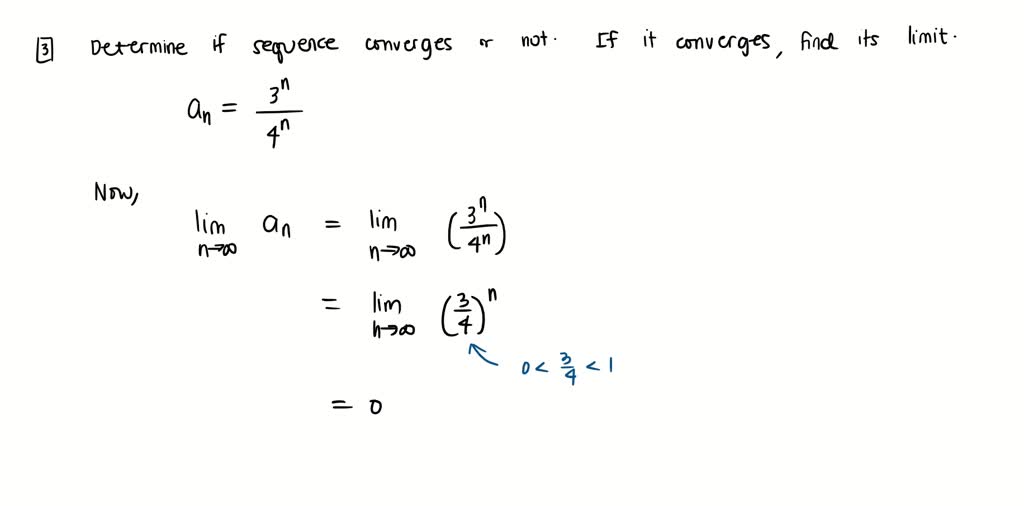 [3] Determine if sequence converges or not. If it converges, find its limit.
aₙ = 3ⁿ / 4ⁿ
Now,
lim n→∞ aₙ = lim n→∞ (3ⁿ / 4ⁿ)
= lim n→∞ (3/4)ⁿ
0 < 3/4 < 1
= 0